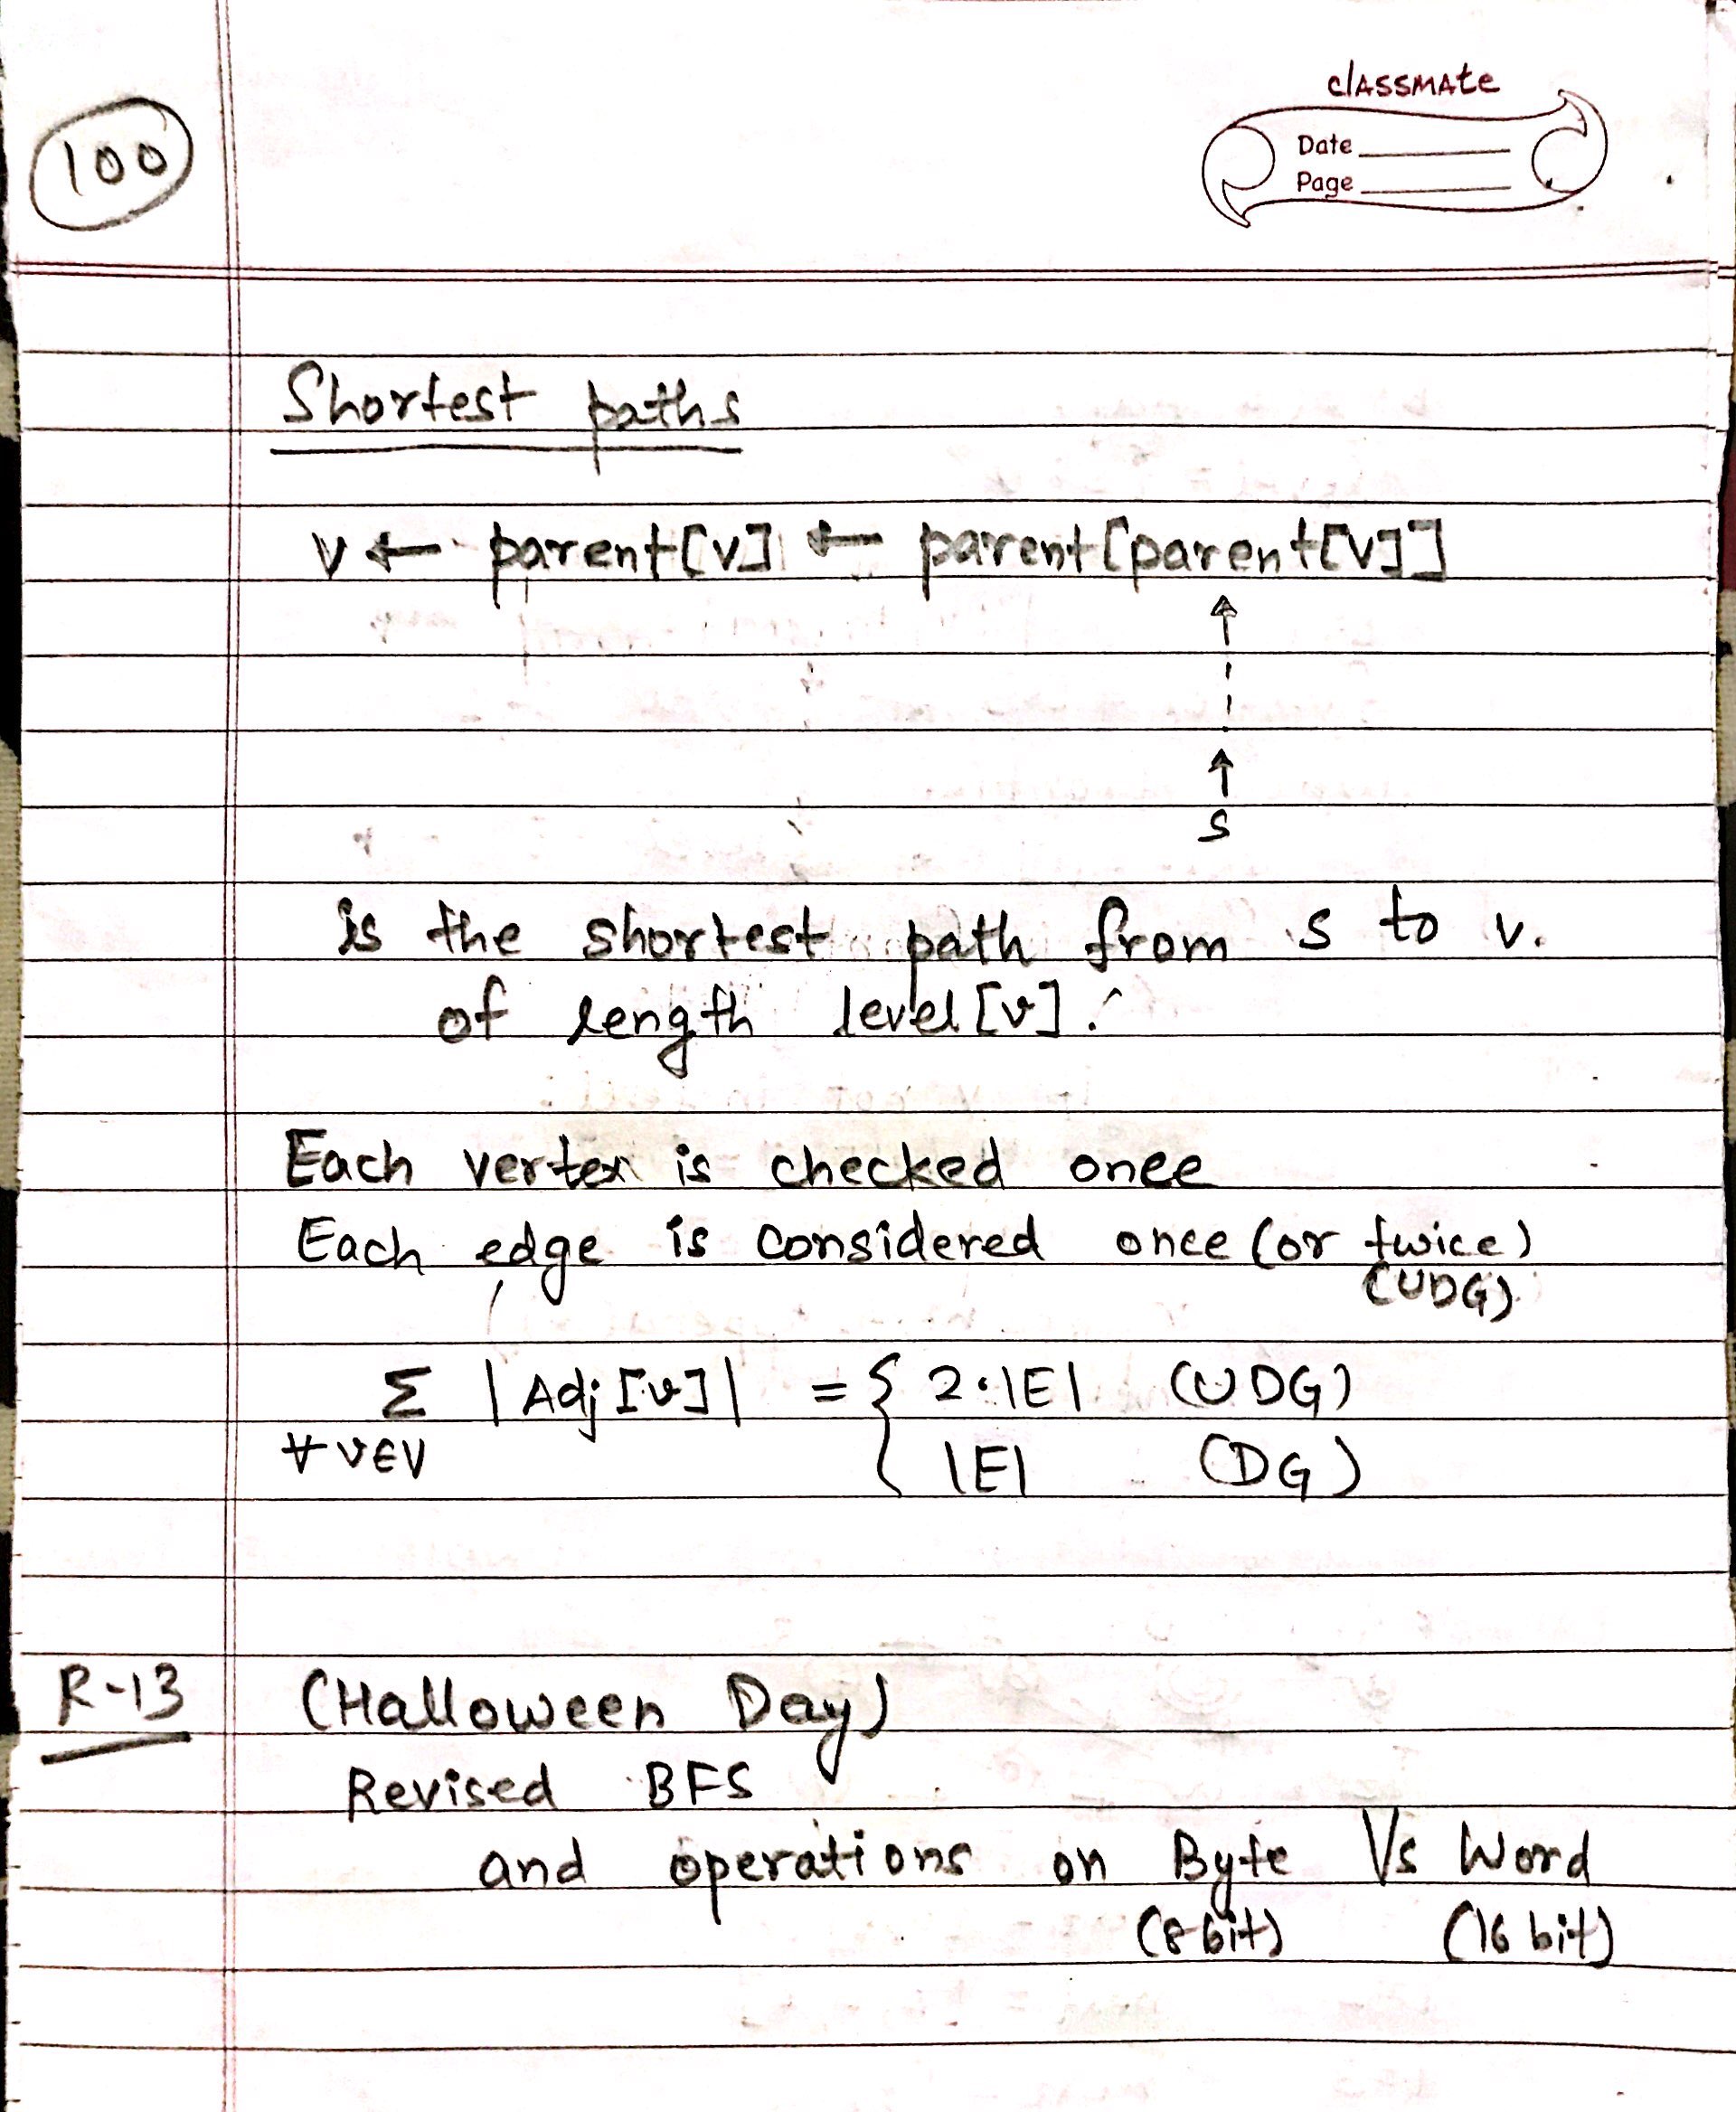 100
classmate
Date
Page
Shortest paths
v ← parent[v] ← parent[parent[v]]
↑
↑
s
is the shortest path from s to v.
of length level[v].
Each vertex is checked once
Each edge is considered once (or twice)
(UDG)
Σ |Adj[v]| = { 2·|E| (UDG)
∀ v∈V |E| (DG)
R-13 (Halloween Day)
Revised BFS
and operations on Byte Vs Word
(8 bit) (16 bit)